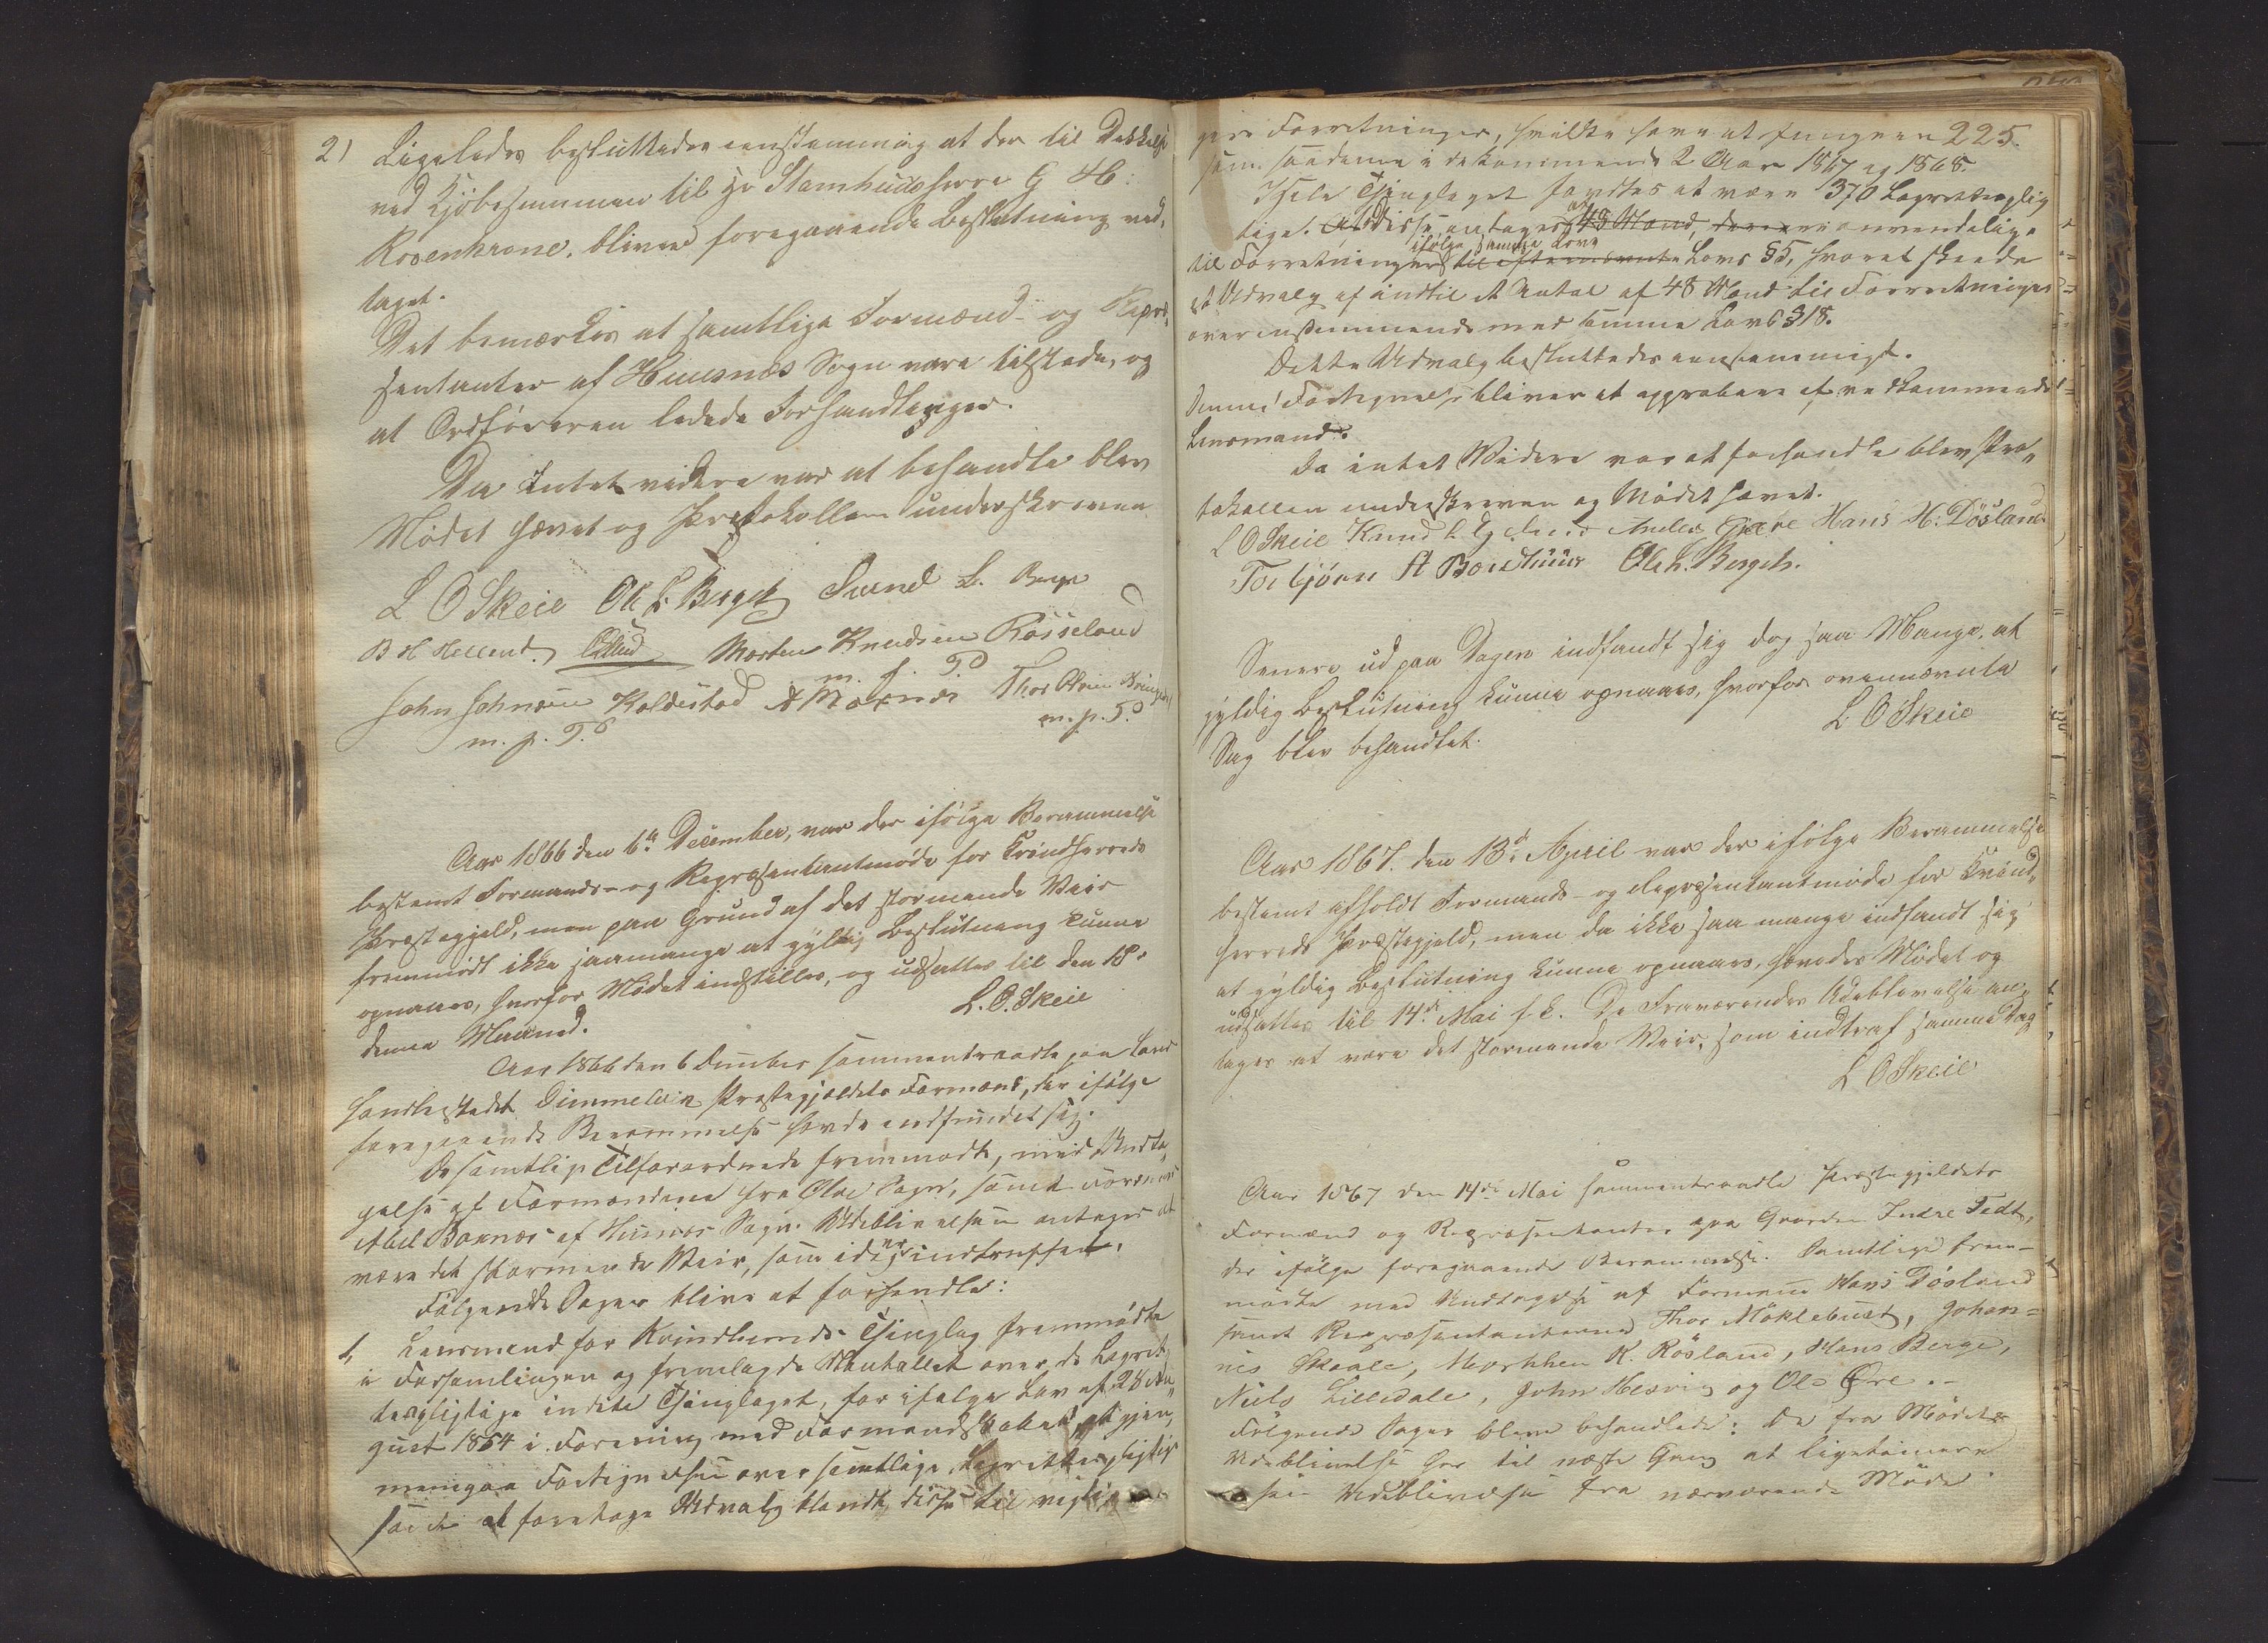 2) Ligeledes besluttedes eenstemmig at der til Dækkelse
ved Kjöbesummen til Hr Stamhuusherre G H:
Rosenkrone, bliver foregaaende Beslutning ved-
taget.
Det bemærkes at samtlige Formænd- og Repræ-
sentanter af Huusnæs Sogn vare tilstede, og
at Ordföreren ledede Forhandlinger.
Da Intet videre var at behandle blev
Mödet hævet og Protokollen underskreven
L O Skeie Ole L. Berget Svend L. Berge
B H Helland. Morten Knudsen Rösseland
m. f. P
John Johnsen Koldestad A M Thor Olsen
m. p. P. m. p. P.
Aar 1866 den 6te December, var der ifölge Berammelse
bestemt Formands- og Repræsentantmöde for Kvindherreds
Præstegjeld, men paa Grund af det stormende Veir
fremmödt ikke saamange at gyldig Beslutning kunne
opnaaes, hvorfor Mödet indstilles, og udsættes til den 18.
denne Maaned. L. O. Skeie
Aar 1866 den 6 December sammentraadte paa Land
handlestedet Dimmelvik Præstegjeldets Formænd, der ifölge
foregaaende Berammelse havde indfundet sig.
De samtlige Tilforordnede fremmödte, med Undta-
gelse af Formændene fra Ölve Sogn, samt Formand
Abel Baxnæs af Huusnæs Sogn. Udeblivelsen antages at
være det stormende Veir, som idag er indtruffet.
Fölgende Sager blive at forhandle:
1, Lensmand for Kvindherreds Thinglag fremmödte
i Forsamlingen og fremlagde Mantallet over de Lagret-
tespligtige indete Thinglaget, for ifölge Lov af 28 Au-
gust 1854 i Forening med Formandskabet at gjen-
nemgaa Fortegnelsen over samtlige Lagrettespligtige
samt at foretage Udvalg blandt disse til vigti
gere Forretninger, hvilke have at fungere 225.
som saadanne i de kommende 2 Aar 1867 og 1868.
I hele Thinglaget fandtes at være 370 Lagrettesplig-
tige. Af disse antages at 48 Mand, deraf anvendelige
ifölge samme Lovs
til Forretninger til efternævnte Lovs §5, hvoraf skeede
et Udvalg af indtil et Antal af 48 Mand til Forretninger
overensstemmende med samme Lovs §18.
Dette Udvalg besluttedes eenstemmigt.
Denne Fortegnelse bliver at approbere af vedkommende
Lensmand.
Da intet Videre var at forhandle blev Pro-
tokollen underskreven og Mödet hævet.
L O Skeie Knud L Anders Gjære Hans H. Dösland
Torbjörn A Bondhuus Ole L. Berget.
Senere ud paa Dagen indfandt sig dog saa Mange, at
gyldig Beslutning kunne opnaaes, hvorfor ovennævnte
Sag blev behandlet. L. O Skeie
Aar 1867. den 13de April var der ifölge Berammelse
bestemt afholdt Formands- og Repræsentantmöde for Kvind-
herreds Præstegjeld, men da ikke saa mange indfandt sig
at gyldig Beslutning kunne opnaaes, hævedes Mödet og
udsættes til 14de Mai f. k. De Fraværendes Udeblivelse an-
tages at være det stormende Veir, som indtraf samme Dag
L O Skeie
Aar 1867 den 14de Mai sammentraadte Præstegjeldets
Formænd og Repræsentanter paa Gaarden Indre Tedt,
der ifölge foregaaende Berammelse. Samtlige frem-
mödte med Undtagelse af Formand Hans Dösland
samt Repræsentanterne Thor Möklebust, Johan-
nes Skaale, Morthen K. Rösland, Hans Berge,
Niels Lilledale, John Hesvig og Ole Öre.-
Fölgende Sager bleve behandlede: De fra Mödet
Udeblivelse har til næste Gang at ligetimere
sin Udeblivelse fra nærværende Möde